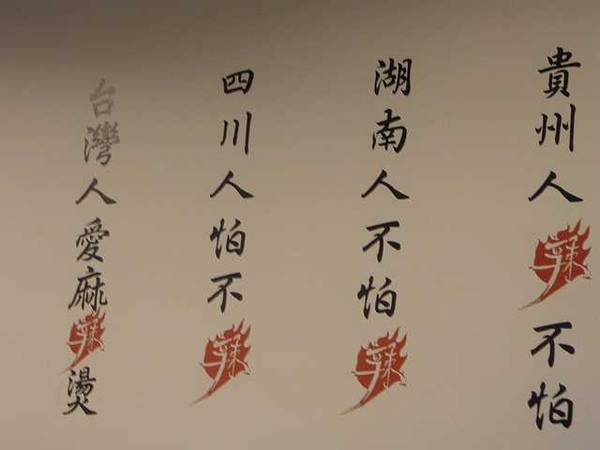 貴州人辣不怕
湖南人不怕辣
四川人怕不辣
台灣人愛麻辣燙